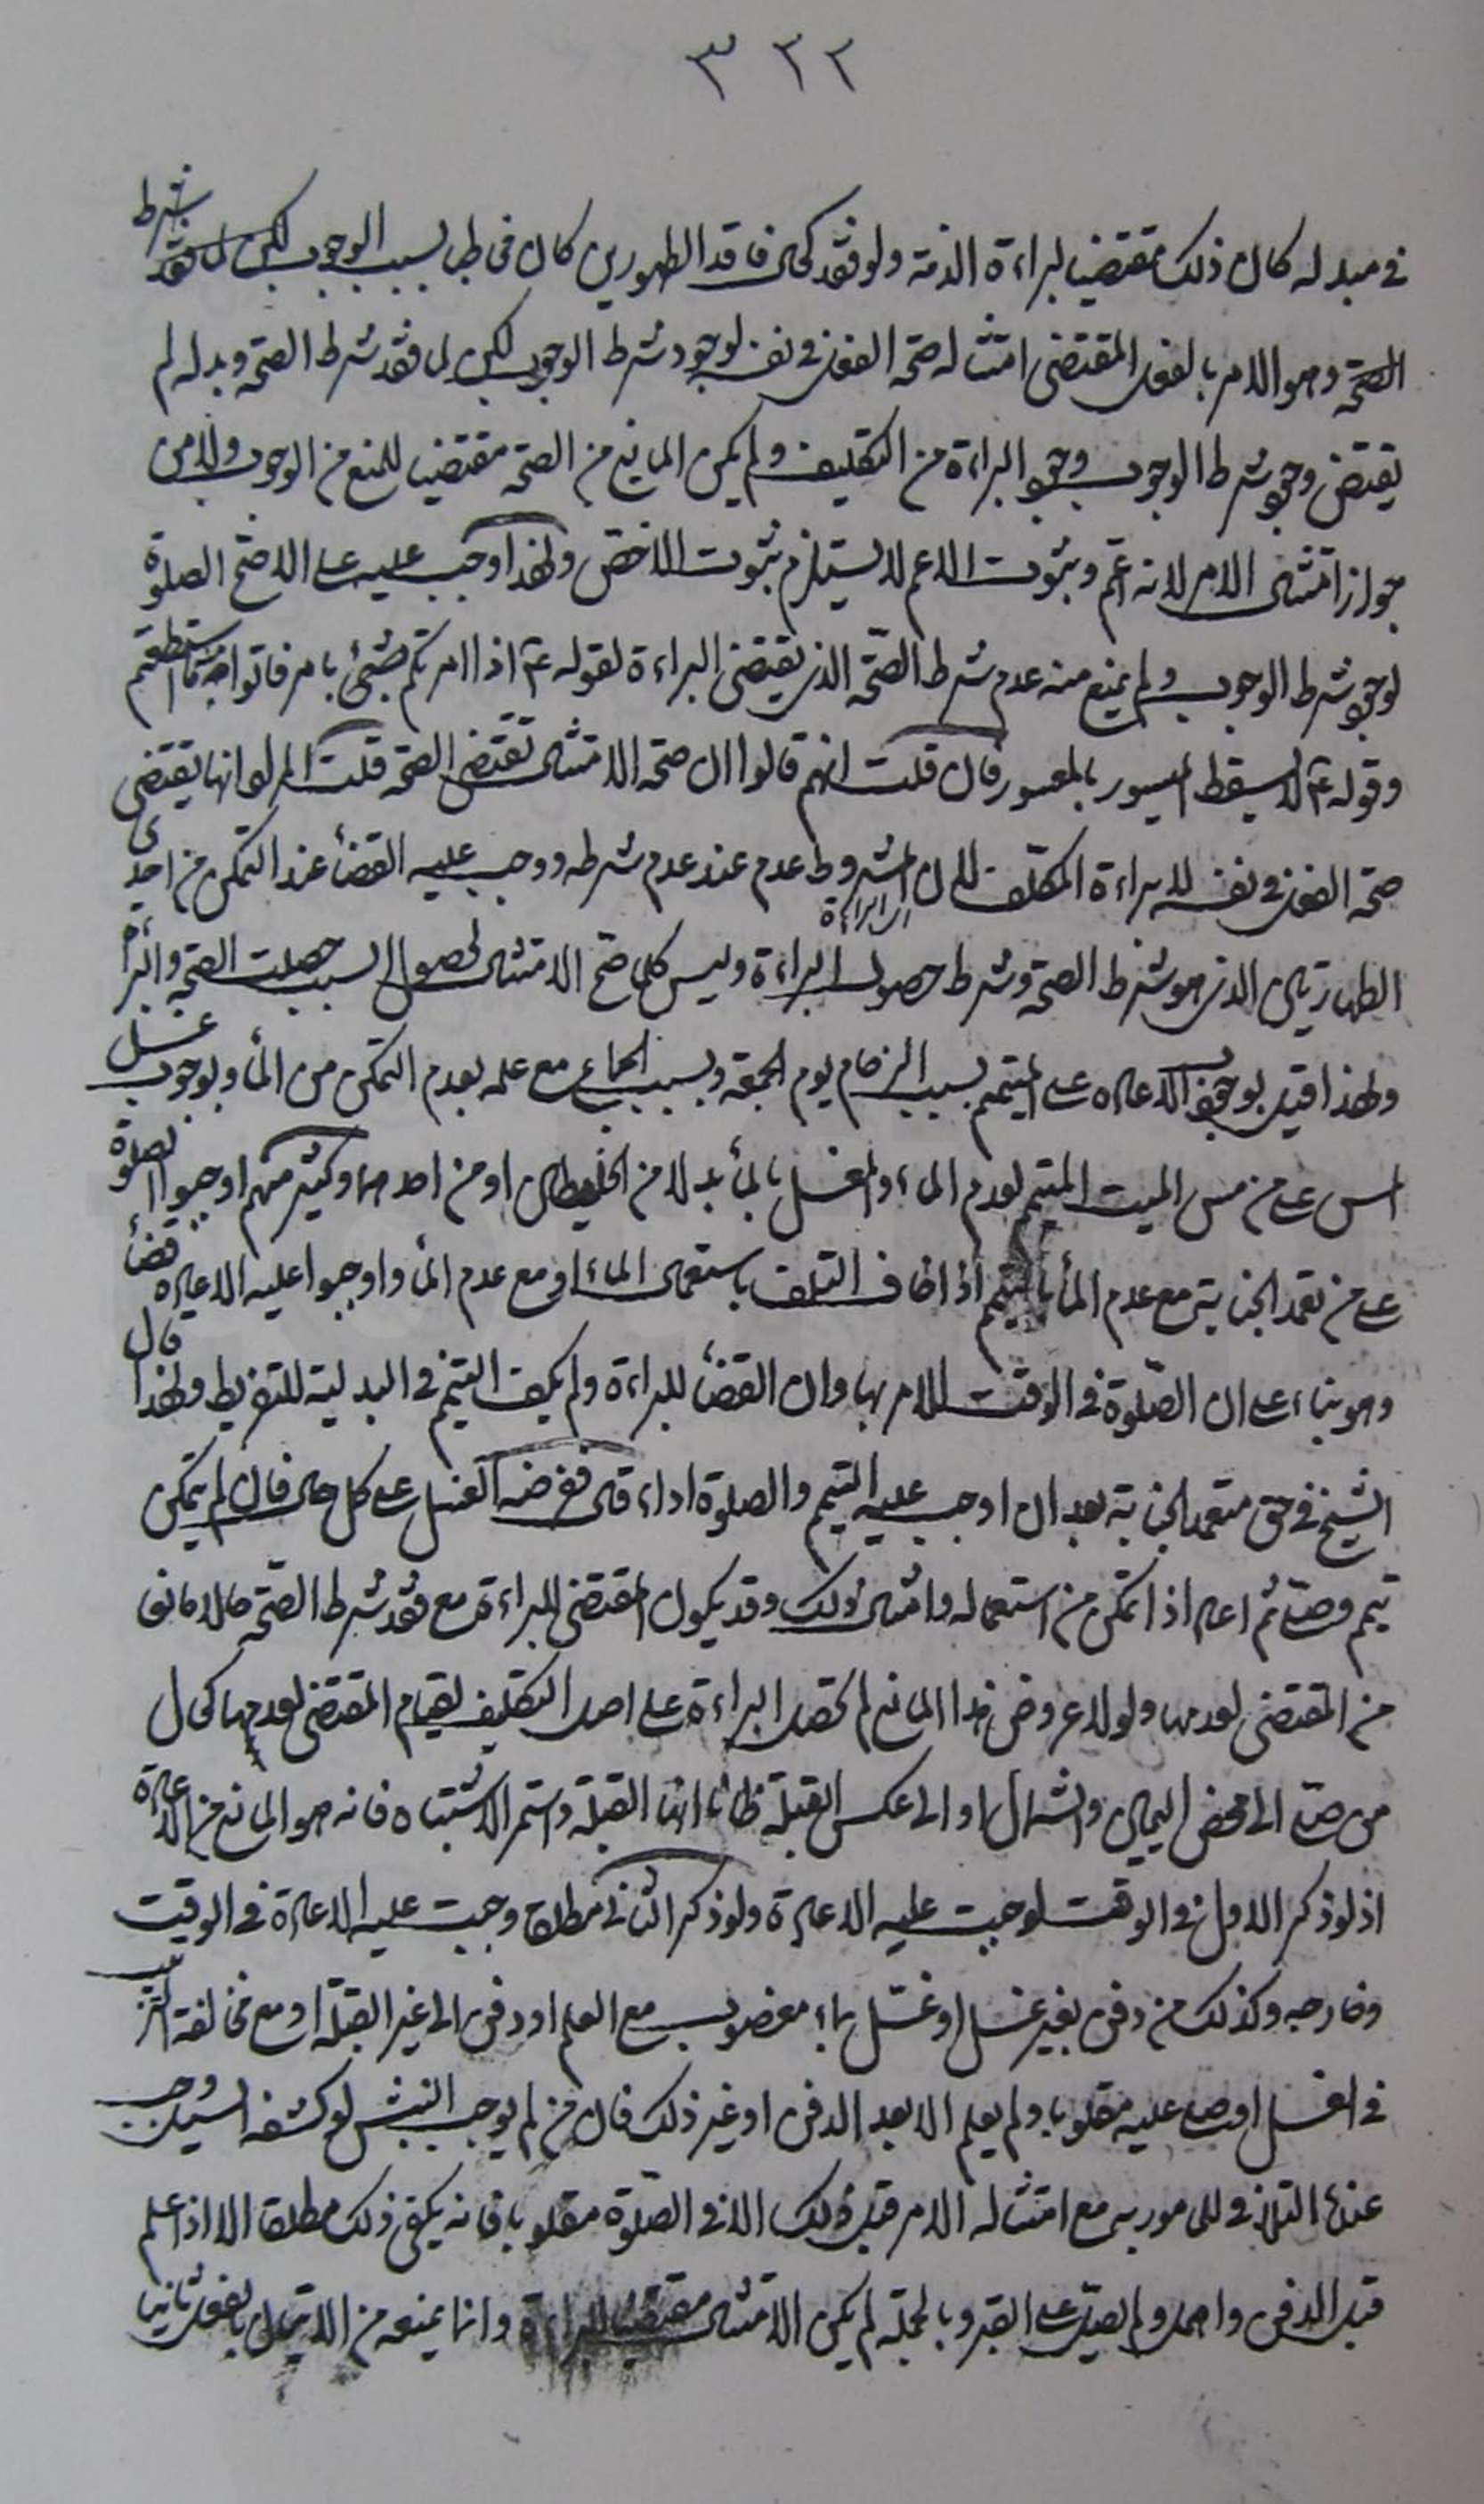 ٣٢٢
في مبدله كان ذلك مقتضيا لبراءة الذمة ولو فقد كحال فاقد الطهورين كان مخاطبا بسبب الوجوب لكن لما فقد شرط
الصحة وهو الامر بالفعل المقتضى امتثاله صحة الفعل في نفسه لوجود شرط الوجوب لكن لما فقد شرط الصحة وبدله لم
يقتض وجود شرط الوجوب وجود البراءة من التكليف ولم يكن المانع من الصحة مقتضيا للمنع من الوجوب والامر
جواز امتثال الامر لانه اعم وثبوت الاعم لا يستلزم ثبوت الاخص ولهذا وجب عليه على الاصح الصلوة
لوجود شرط الوجوب ولم يمنع منه عدم شرط الصحة الذي يقتضي البراءة لقوله ع اذا امرتكم بشئ بامر فاتوا منه ما استطعتم
وقوله ع لا يسقط الميسور بالمعسور فان قلت انهم قالوا ان صحة الامتثال تقتضي الصحة قلت المراد انها يقتضي
صحة الفعل في نفسه لا براءة المكلف لان المشروط عدم عند عدم شرطه ووجب عليه القضأ عند التمكن من احدى
الطهارتين الذي هو شرط الصحة وشرط حصول البراءة وليس كلما صح الامتثال لحصول السبب حصلت الصحة والبراءة
ولهذا قيل بوجوب الاعادة على المتيمم بسبب الزحام يوم الجمعة وبسبب الجماع مع علمه بعدم التمكن من المأ وبوجوب غسل
المس على من مس الميت المتيمم لعدم الماء والمغسل بالمأ بدلا من الخليطين او من احدهما وكثير منهم اوجبوا الصلوة
على من تعمد الجنابة مع عدم المأ بالتيمم اذا خاف التلف باستعمال الماء او مع عدم المأ واوجبوا عليه الاعادة قضأ
وهو بناء على ان الصلوة في الوقت للامر بها وان القضأ للبراءة ولم يكف التيمم في البدلية للتفريط ولهذا قال
الشيخ في حق متعمد الجنابة بعد ان اوجب عليه التيمم والصلوة اداء قال ففرضه الغسل على كل حال فان لم يتمكن
تيمم وصلى ثم اعاد اذا تمكن من استعماله وامثال ذلك وقد يكون المقتضى للبراءة مع فقد شرط الصحة حالا مانعا
من المقتضى لعدمها ولولا عروض هذا المانع لم تحصل البراءة على اصل التكليف لقيام المقتضى لعدمها كحال
من صلى الى محض اليمين والشمال او الى عكس القبلة ظانا انها القبلة واستمر الاشتباه فانه هو المانع من الاعادة
اذ لو ذكر الاول في الوقت لوجبت عليه الاعادة ولو ذكر الثاني مطلقا وجبت عليه الاعادة في الوقت
وخارجه وكذلك من دفن بغير غسل او غسل بماء مغصوب مع العلم او دفن الى غير القبلة او مع مخالفة الترتيب
في الغسل او صلى عليه مقلوبا ولم يعلم الا بعد الدفن او غير ذلك فان من لم يوجب النبش لو كشفه السيل وجب
عنده التلافي للمأمور به مع امتثاله الامر قبل ذلك الا في الصلوة مقلوبا فانه يكفي ذلك مطلقا الا اذا علم
قبل الدفن واهمل ولم يصل على القبر وبالجملة لم يكن الامتثال مقتضيا للبراءة وانما يمنعه من الاتيان بالفعل ثانيا